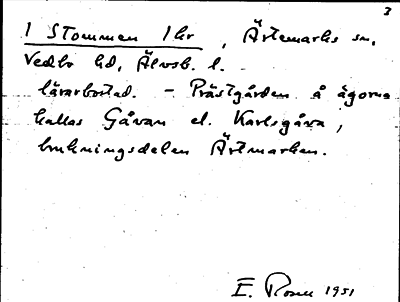 3
1 Stommen 1 kr, Ärtemarks sn,
Vedbo hd, Älvsb. l.
lärarbostad. – Prästgården å ägorna
kallas Gåvan el. Karlsgåva,
brukningsdelen Ärtmarken.
E. Rosen 1951